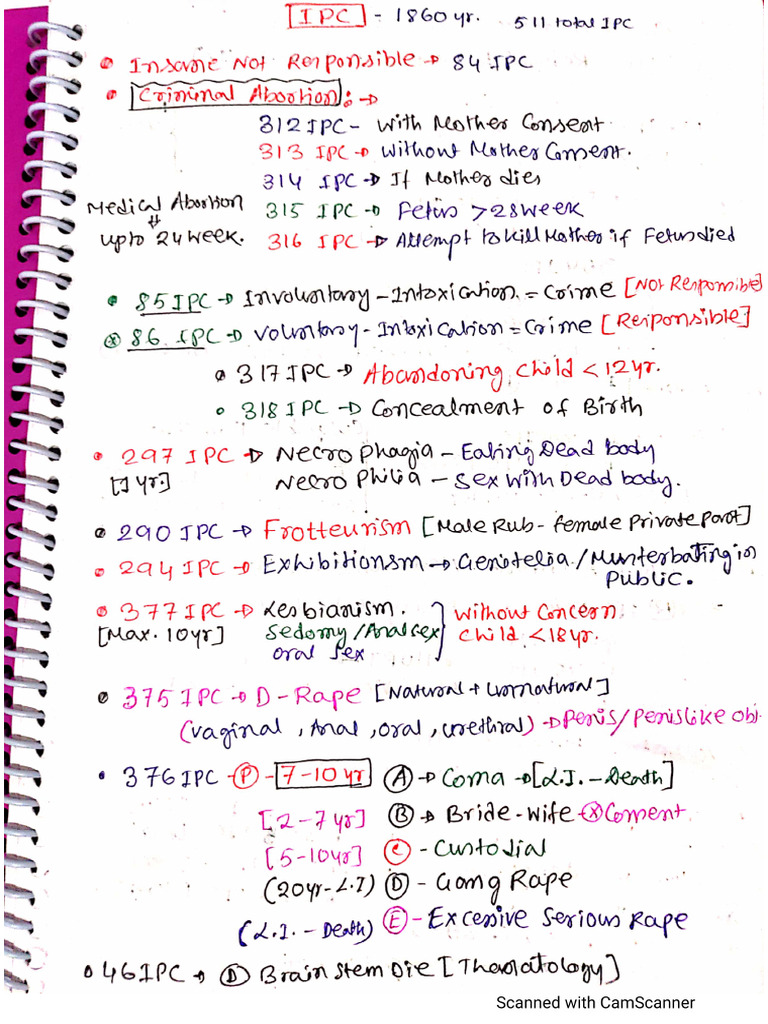 IPC - 1860 yr. 511 total IPC
• Insane Not Responsible → 84 IPC
• Criminal Abortion : →
312 IPC - With Mother Consent
313 IPC → Without Mother Consent.
314 IPC → If Mother dies
Medical Abortion
315 IPC → Fetus > 28 week
upto 24 week.
316 IPC → Attempt to kill Mother if Fetus died
• 85 IPC → Involuntary - Intoxication = Crime [Not Responsible]
86 IPC → Voluntary - Intoxication = Crime [Responsible]
• 317 IPC → Abandoning child < 12 yr.
• 318 IPC → Concealment of Birth
• 297 IPC → Necro Phagia - Eating Dead body
[1 yr] Necro Philia - Sex with Dead body.
• 290 IPC → Frotteurism [Male Rub - female Private Part]
• 294 IPC → Exhibitionsm → Genitelia / Munterbating in
Public.
• 377 IPC → Lesbianism. Without Concern
[Max. 10 yr] Sedomy / Anal sex child < 18 yr.
oral sex
• 375 IPC → D - Rape [Natural + Unnatural]
(vaginal, Anal, oral, urethral) → Penis / Penislike obj.
• 376 IPC - P - 7-10 yr A → Coma → [L.I. - Death]
[2-7 yr] B → Bride - wife X Consent
[5-10 yr] C - Custodial
(20 yr - L.I) D - Gang Rape
(L.I. - Death) E - Excessive Serious Rape
• 46 IPC → D Brain Stem Die [Thanatology]
Scanned with CamScanner